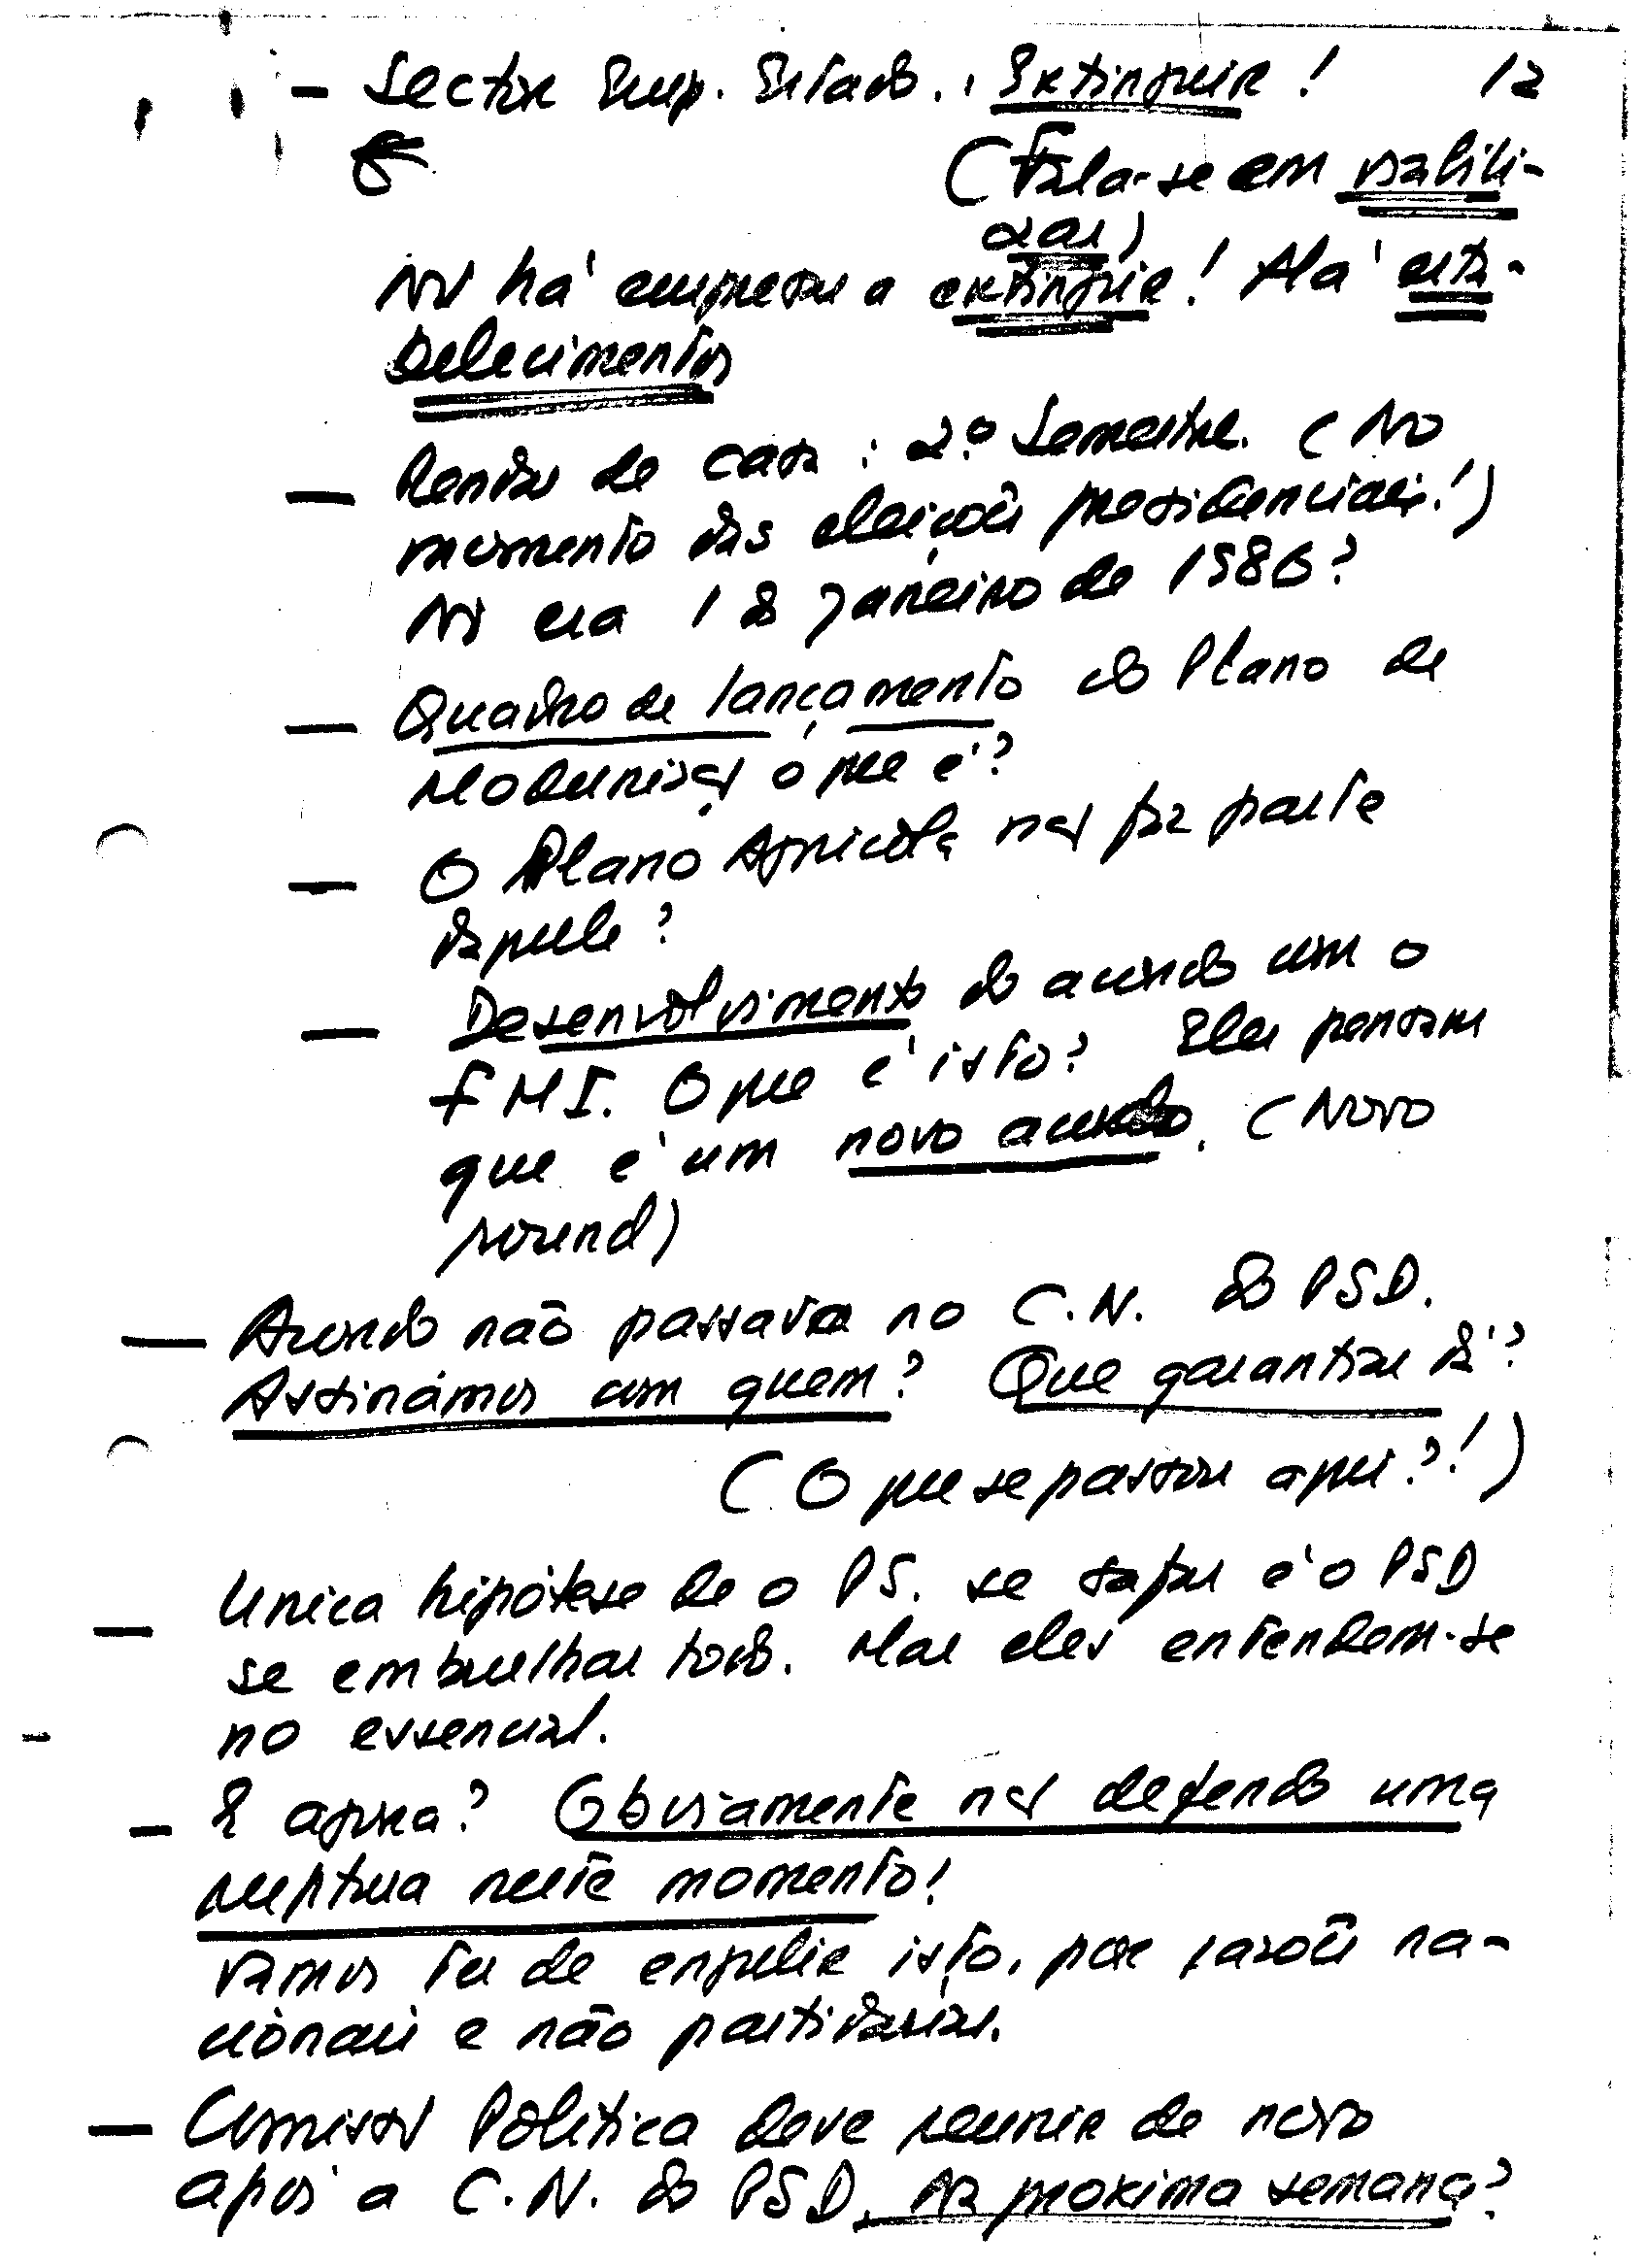 — Sector Emp. Estado.: Extinguir! 12
(Fala-se em viabili-
zar)
Não há empresas a extinguir! Há esta-
belecimentos
— Rendas de casa: 2º Semestre. (No
momento das eleições presidenciais!)
Não era 1 de Janeiro de 1986?
— Quadro de lançamento do Plano de
Modernização o que é?
— O Plano Agrícola não faz parte
daquele?
— Desenvolvimento do acordo com o
FMI. O que é isto? Eles pensam
que é um novo acordo. (Novo
round)
— Acordo não passava no C.N. do PSD.
Assinámos com quem? Que garantias dá?
(O que se passou aqui?!)
— Unica hipótese de o PS. se safar é o PSD
se embrulhar todo. Mas eles entendem-se
no essencial.
— E agora? Obviamente não defendo uma
ruptura neste momento!
Vamos ter de engulir isto, por razões na-
cionais e não partidárias.
— Comissão Política deve reunir de novo
após a C.N. do PSD. Na proxima semana?